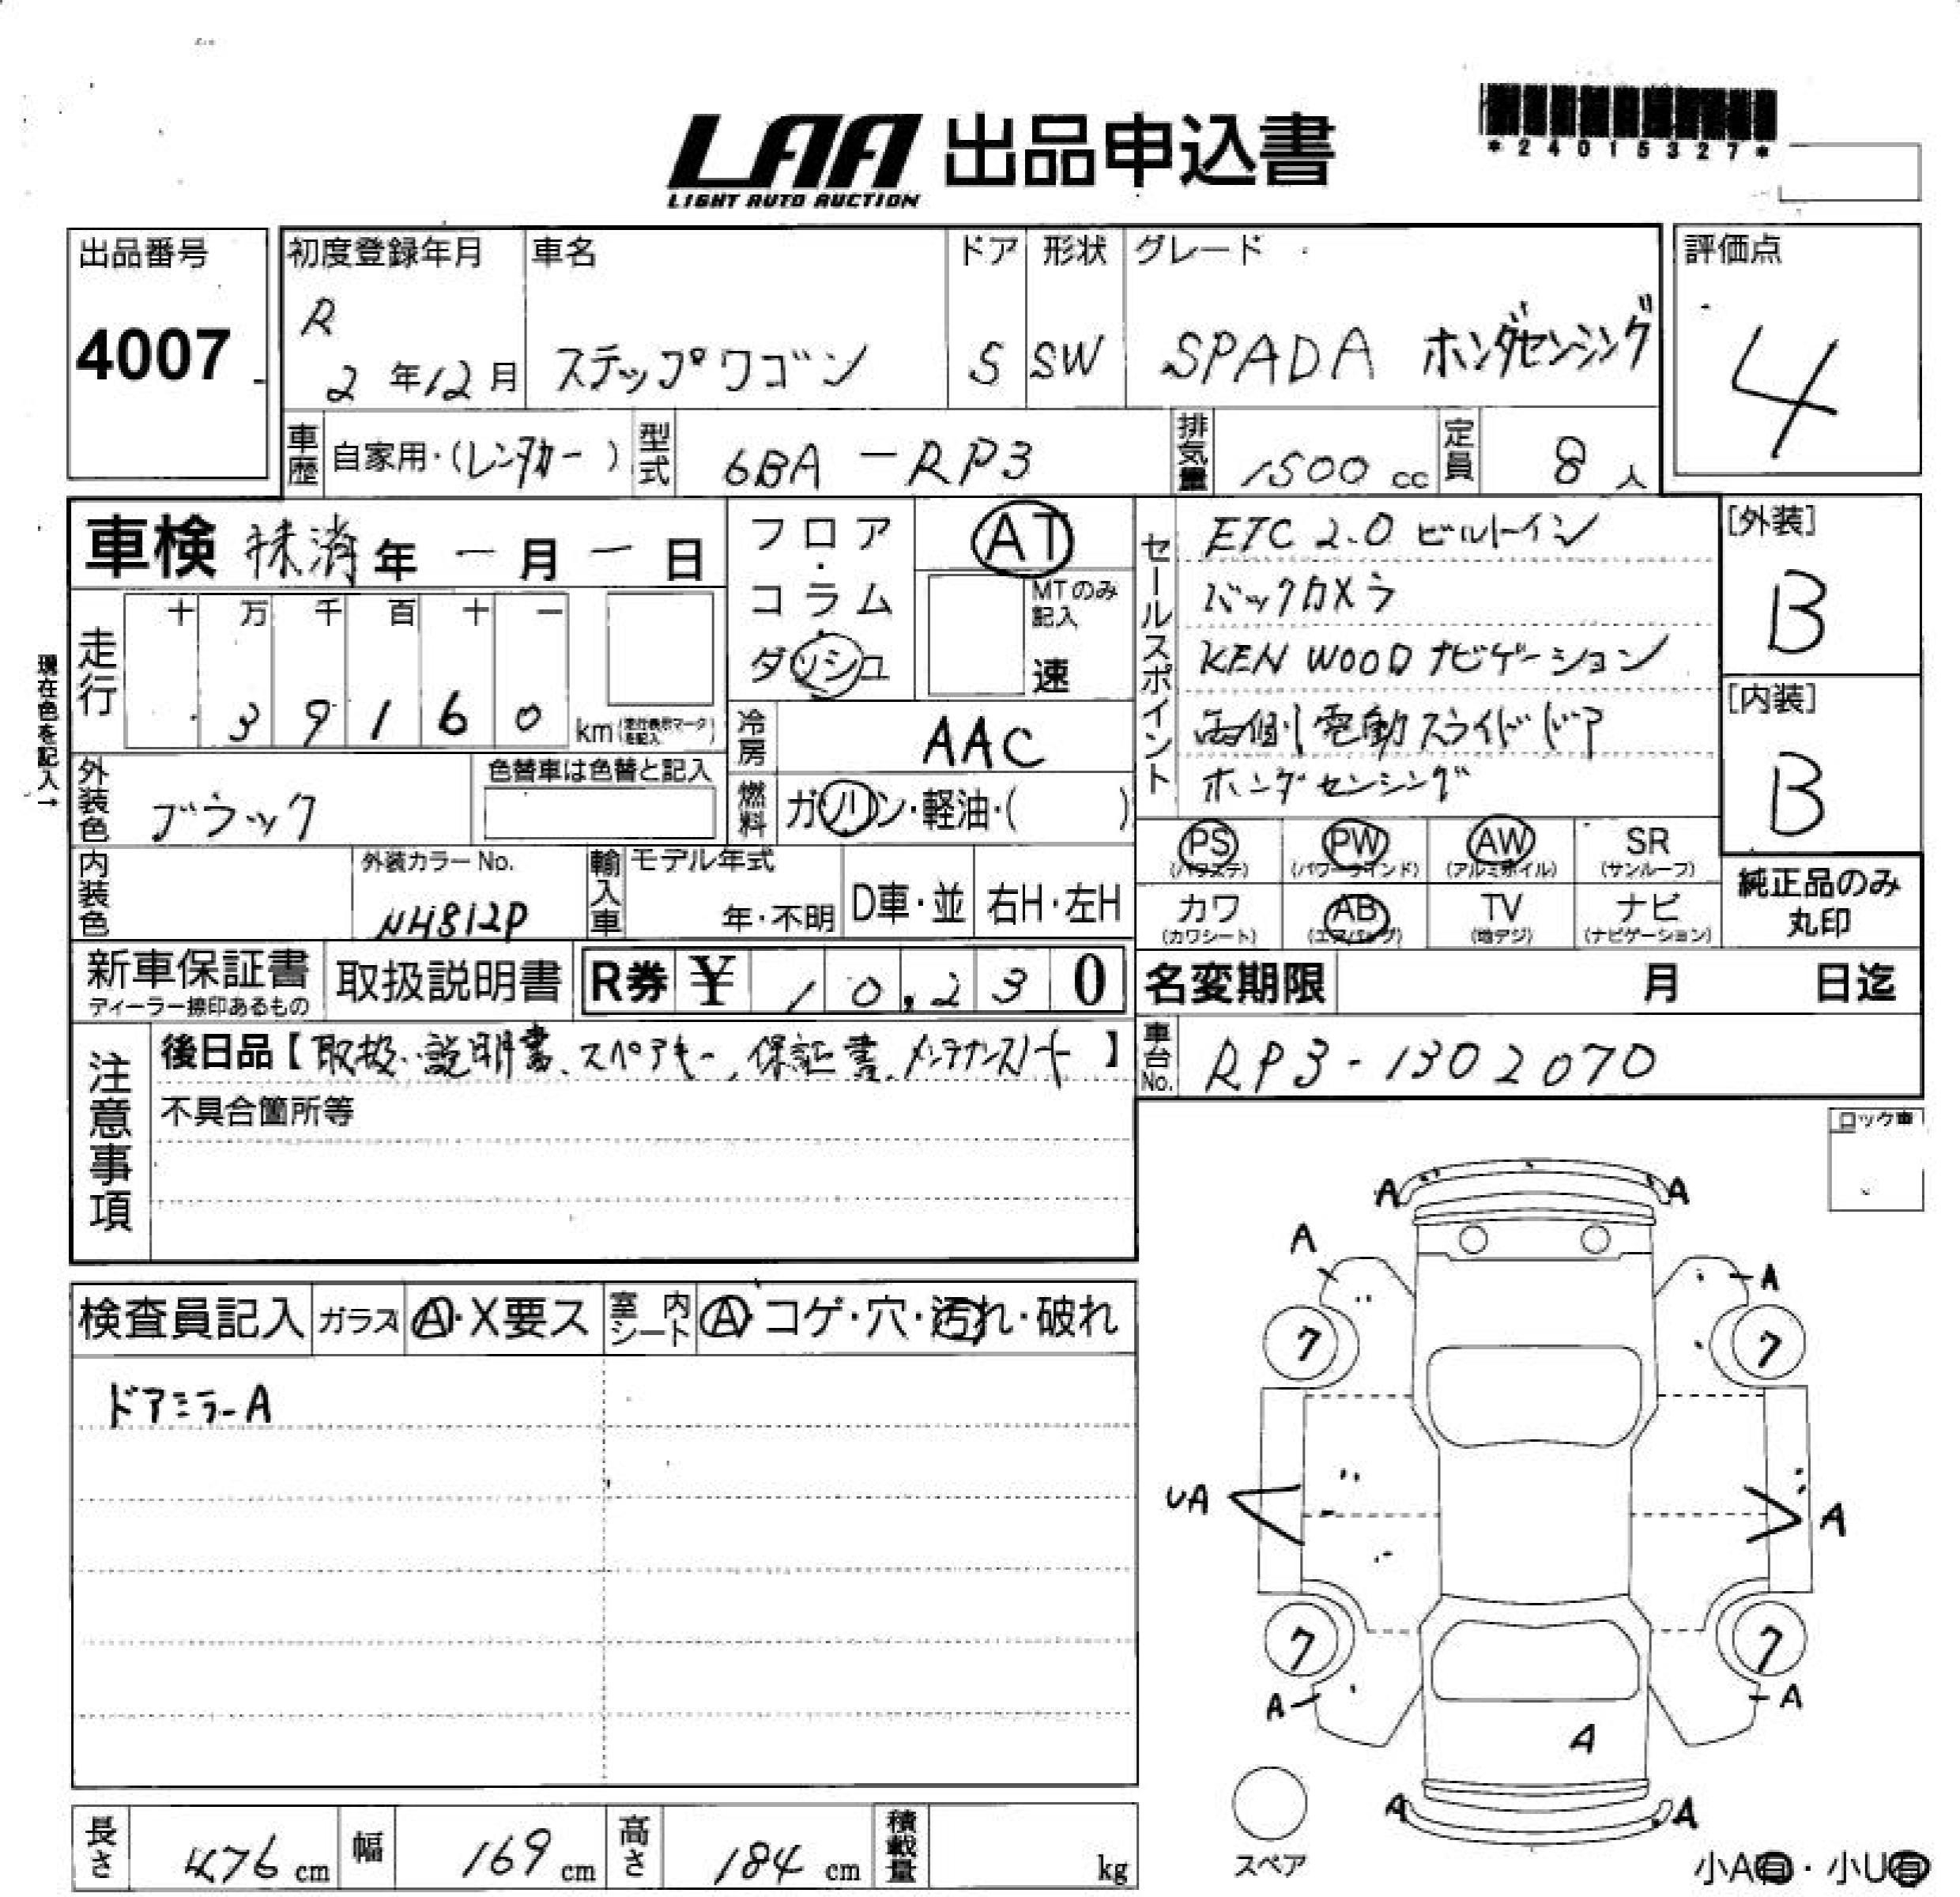 LAA 出品申込書
LIGHT AUTO AUCTION
*24015327*
出品番号
4007
初度登録年月
R
2年12月
車名
ステップワゴン
ドア
S
形状
SW
グレード
SPADA ホンダセンシング
評価点
4
車歴 自家用・(レンタカー)
型式 6BA-RP3
排気量 1500cc
定員 8人
車検 抹消年 - 月 - 日
現在色を記入→
走行
十 万 千 百 十 一
3 9 1 6 0 km (走行表示マークを記入)
外装色 ブラック
色替車は色替と記入
内装色
外装カラーNo.
NH812P
輸入車
モデル年式
年・不明
D車・並
右H・左H
フロア・コラム・ダッシュ
AT
MTのみ記入
速
冷房 AAC
燃料 ガソリン・軽油・( )
セールスポイント
ETC 2.0 ビルトイン
バックカメラ
KENWOOD ナビゲーション
両側電動スライドドア
ホンダセンシング
[外装]
B
[内装]
B
PS (パワステ)
PW (パワーウインド)
AW (アルミホイル)
SR (サンルーフ)
カワ (カワシート)
AB (エアバッグ)
TV (地デジ)
ナビ (ナビゲーション)
純正品のみ丸印
新車保証書
ディーラー捺印あるもの
取扱説明書
R券 ¥ 10,230
名変期限 月 日迄
注意事項
後日品【取扱説明書、スペアキー、保証書、メンテナンスノート】
不具合箇所等
車台No. RP3-1302070
ロック車
検査員記入
ガラス A・X要ス
室内シート A・コゲ・穴・汚れ・破れ
ドアミラーA
A A
A A
ク ク
UA A
ク ク
A A
A
A A
スペア
小A有・小U有
長さ 476cm
幅 169cm
高さ 184cm
積載量 kg